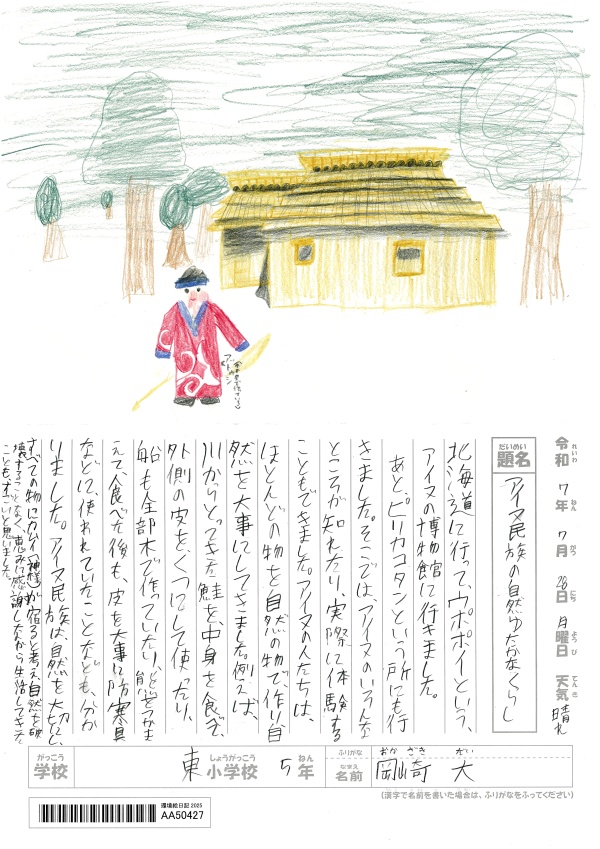 令和 7年 7月 28日 月曜日 天気 晴れ
れいわ ねん がつ にち ようび てんき
だいめい
題名 アイヌ民族の自然ゆたかなくらし
北海道に行って、ウポポイという、
アイヌの博物館に行きました。
あと、ピリカコタンという所にも行
きました。そこでは、アイヌのいろんな
ところが知れたり、実際に体験する
こともできました。アイヌの人たちは、
ほとんどの物を自然の物で作り、自
然を大事にしてきました。例えば、
川からとってきた鮭を、中身を食べて、
外側の皮を、くつにして使ったり、
船も全部木で作っていたり、熊をつかま
えて、食べた後も、皮を大事に防寒具
などに、使われていたことなども、分か
りました。アイヌ民族は、自然を大切にし、
すべての物にカムイ(神様)が宿ると考え、自然を破
壊することなく、恵みに感謝しながら生活してきた
ことも、すごいと思いました。
がっこう
学校
東 小学校 5年
しょうがっこう ねん
ふりがな おかざき だい
なまえ
名前 岡崎 大
(漢字で名前を書いた場合は、ふりがなをふってください)
環境絵日記 2025
AA50427